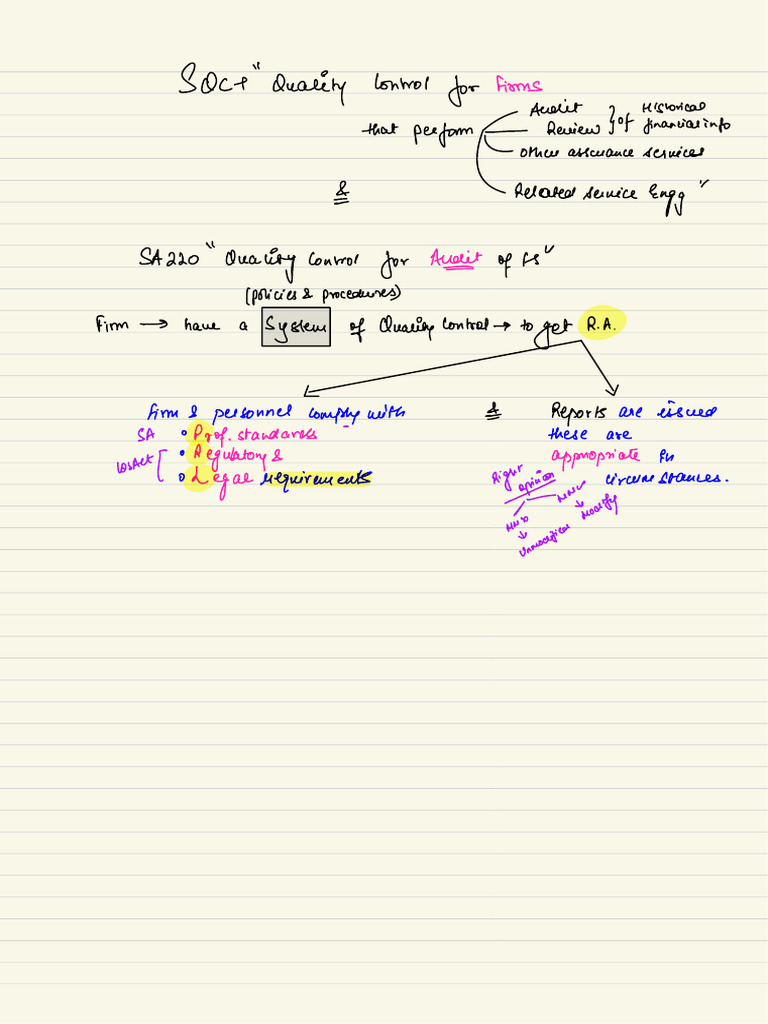 SQC-1 "Quality Control for Firms
that perform
Audit
Review } of Historical financial info
Other assurance services
Related service Engg"
&
SA220 "Quality Control for Audit of FS"
(policies & procedures)
Firm → have a System of Quality Control → to get R.A.
Firm & personnel comply with
SA • Prof. standards
CosAct • Regulatory &
• Legal requirements
&
Reports are issued
these are
appropriate in
circumstances.
Right
opinion
→ Unmodified
→ Modify